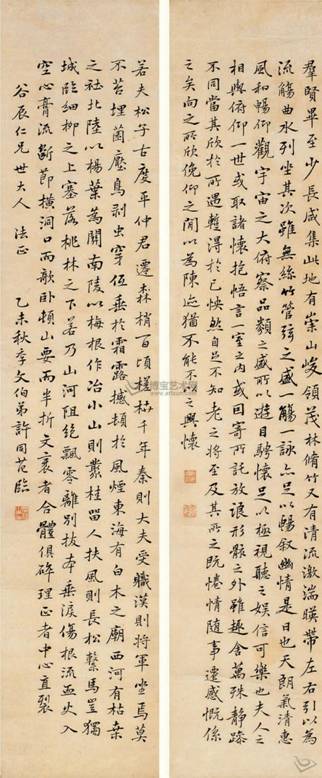 羣賢畢至少長咸集此地有崇山峻領茂林脩竹又有清流激湍暎帶左右引以為
流觴曲水列坐其次雖無絲竹管弦之盛一觴一詠亦足以暢敘幽情是日也天朗氣清惠
風和暢仰觀宇宙之大俯察品類之盛所以遊目騁懷足以極視聽之娛信可樂也夫人之
相與俯仰一世或取諸懷抱悟言一室之內或因寄所託放浪形骸之外雖趣舍萬殊靜躁
不同當其欣於所遇暫得於己怏然自足不知老之將至及其所之既惓情隨事遷感慨係
之矣向之所欣俛仰之間以為陳迹猶不能不以之興懷
若夫松子古度平仲君遷森梢百頃槎枿千年秦則大夫受職漢則將軍坐焉莫
不苔埋菌壓鳥剝虫穿伍垂於霜露撼頓於風煙東海有白木之廟西河有枯桒
之社北陸以楊葉為關南陵以梅根作冶小山則叢桂留人扶風則長松繫馬豈獨
城臨細柳之上塞落桃林之下若乃山河阻絕飄零離別拔本垂淚傷根流血火入
空心膏流斷節橫洞口而敧臥頓山要而半折文衺者合體俱碎理正者中心直裂
谷辰仁兄世大人 法正 乙未秋季文伯弟許同范臨
博宝艺术网